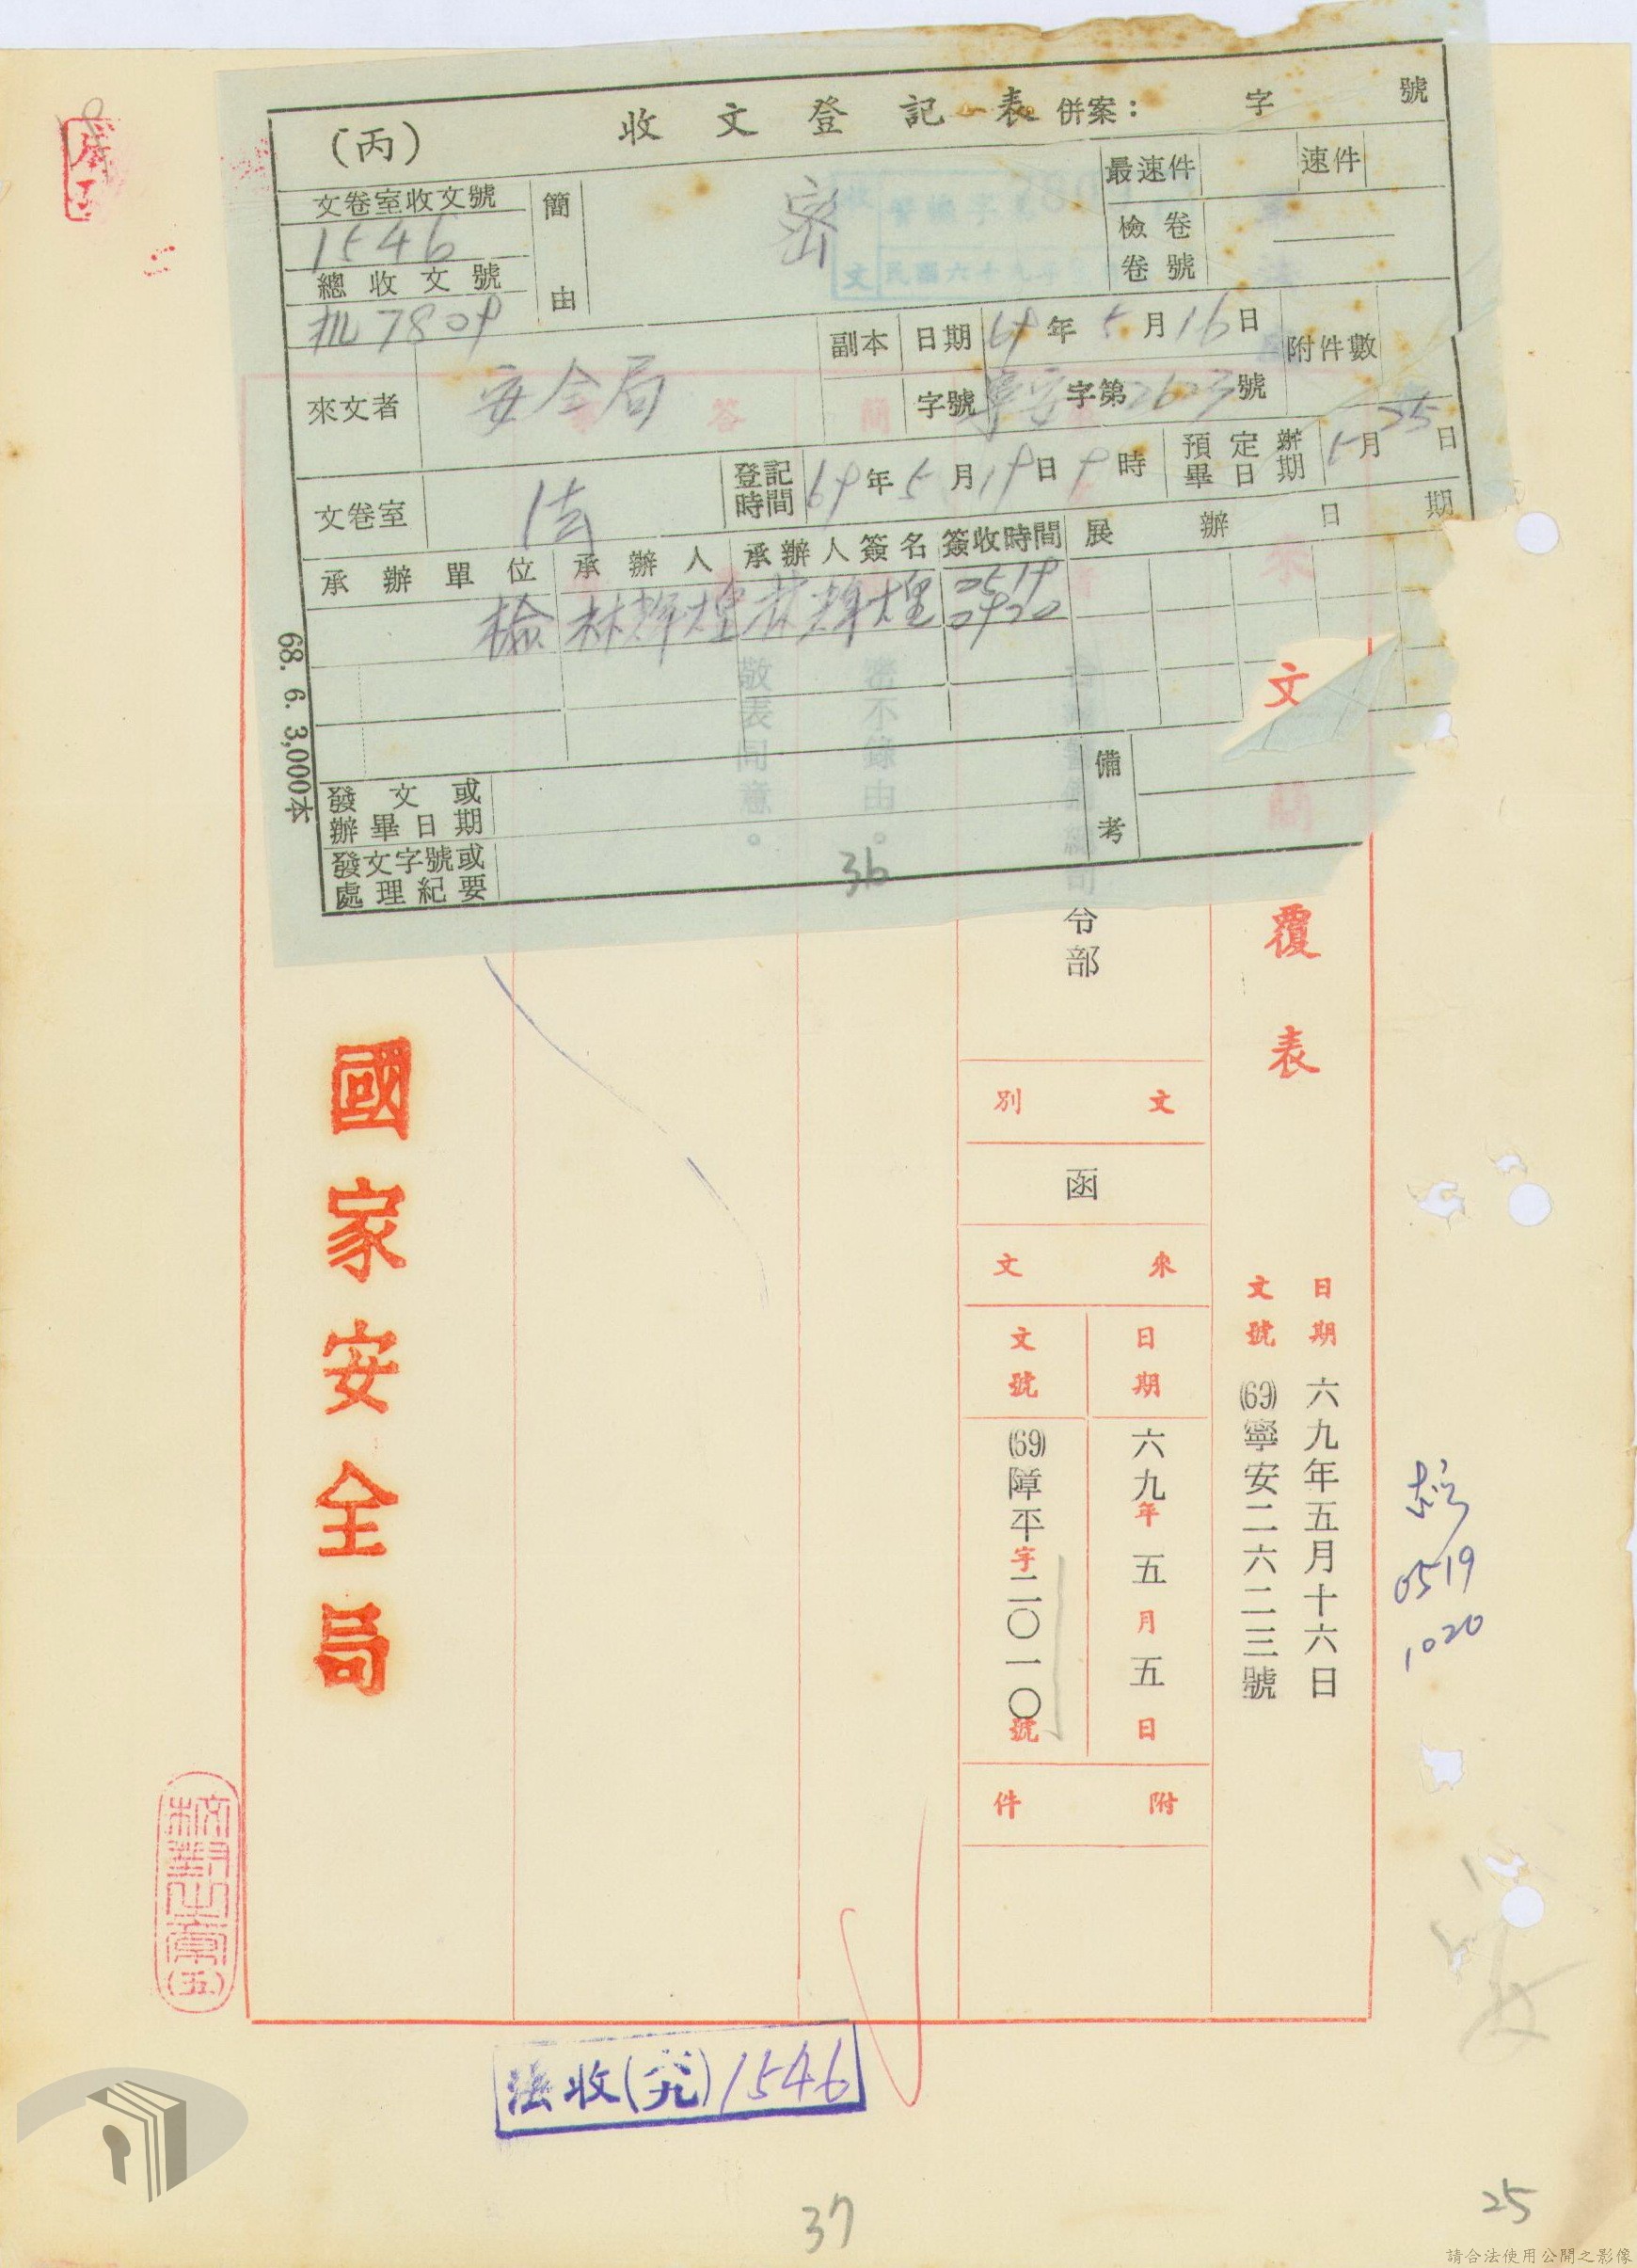 (丙)
收文登記表 併案： 字 號
文卷室收文號
1546
總收文號
7809
簡由
密
最速件
速件
檢卷
卷號
來文者
安全局
副本
日期 69年5月16日
字號 寧安字第2623號
附件數
文卷室
法
登記時間 69年5月19日9時
預定辦畢日期 5月25日
承辦單位
承辦人
承辦人簽名
簽收時間
展辦日期
檢
林輝煌
林輝煌
0519
0920
發文或
辦畢日期
發文字號或
處理紀要
備考
68. 6. 3,000本
36
來文簡覆表
日期 六九年五月十六日
文號 (69)寧安二六二三號
令部
文別
函
來文
日期
六九年五月五日
文號
(69)障平字二〇一〇號
附件
密不錄由。
敬表同意。
國家安全局
0519
1020
校對之章(五)
法收(六九)1546
37
25
請合法使用公開之影像